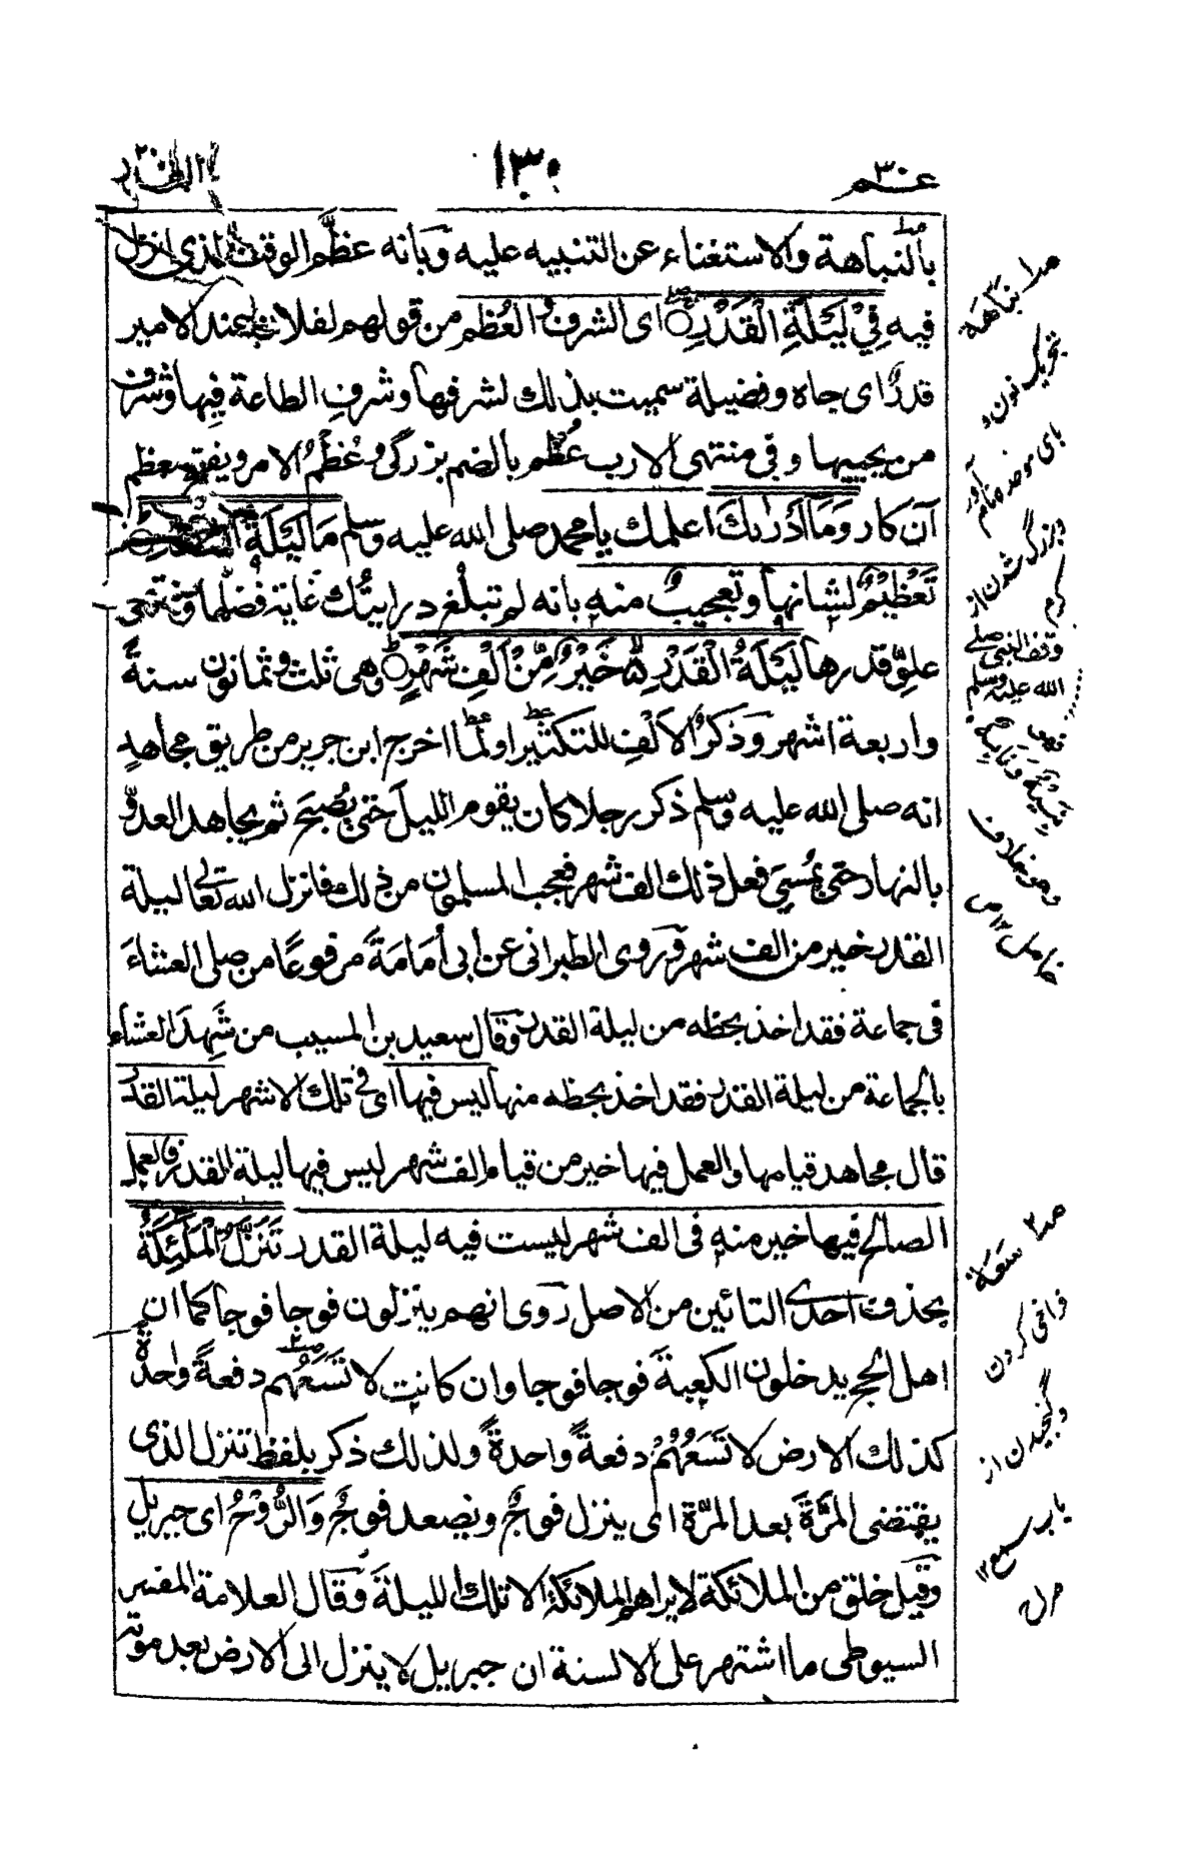 عم ٣٠
١٣٠
بالنباهة والاستغناء عن التنبيه عليه وبانه عظم الوقت الذى انزل
فيه فِيْ لَيْلَةِ الْقَدْرِ اى الشرف والعُظم من قولهم لفلان عند الامير
قدرٌ اى جاه وفضيلة سميت بذلك لشرفها وشرفِ الطاعة فيها وشرف
من يحييها وفى منتهى الارب عُظم بالضم بزرگى وعُظمُ الامر ويفتح معظم
آن كار وَمَا أَدْرٰىكَ اعلمك يا محمد صلى الله عليه وسلم مَا لَيْلَةُ
تَعْظِيْمٌ لشانها وتعجيبٌ منه بانه لم تبلغ درايتُك غاية فضلها ومنتهى
علوّ قدرها لَيْلَةُ الْقَدْرِ خَيْرٌ مِّنْ أَلْفِ شَهْرٍ وهى ثلث وثمانون سنةً
واربعة اشهر وذكرُ الالفِ للتكثير او لما اخرج ابن جرير من طريق مجاهدٍ
انه صلى الله عليه وسلم ذكر رجلا كان يقوم الليلَ حتى يُصْبِحَ ثم يجاهد العدوَّ
بالنهار حتى يُمْسِيَ فعل ذلك الف شهر فعجب المسلمون من ذلك فانزل الله تعالى ليلة
القدر خير من الف شهر وروى الطبرانى عن أبى أمَامَةَ مرفوعًا من صلى العشاءَ
فى جماعة فقد اخذ بحظه من ليلة القدر وقال سعيد بن المسيب من شَهِدَ العشاء
بالجماعة من ليلة القدر فقد اخذ بحظه منها ليس فيها اى فى تلك الاشهر ليلة القدر
قال مجاهد قيامها والعمل فيها خير من قيام الف شهر ليس فيها ليلة القدر والعمل
الصالح فيها خير منه فى الف شهر ليست فيه ليلة القدر تَنَزَّلُ الْمَلٰئِكَةُ
بحذف احدى التائين من الاصل روى انهم ينزلون فوجا فوجا كما ان
اهل الحج يدخلون الكعبةَ فوجا فوجا وان كانت لا تَسَعُهُم دفعةً واحدةً
كذلك الارض لا تَسَعُهُمْ دفعةً واحدةً ولذلك ذكر بلفظ تنزل الذى
يقتضى المَرَّةَ بعد المرّة اى ينزل فوجٌ ويصعد فوجٌ وَالرُّوْحُ اى جبريل
وقيل خلق من الملائكة لا يراهم الملائكة الا تلك الليلةَ وقال العلامة المفسر
السيوطى ما اشتهر على الالسنة ان جبريل لا ينزل الى الارض بعد موت
نباهة
تحريك نون و
باى موحده نام آور
و بزرگ شدن از
كرم
وقف النبى صلى
الله عليه وسلم
سَعَة
فراخى كردن
و گنجيدن از
باب سمع ١٢